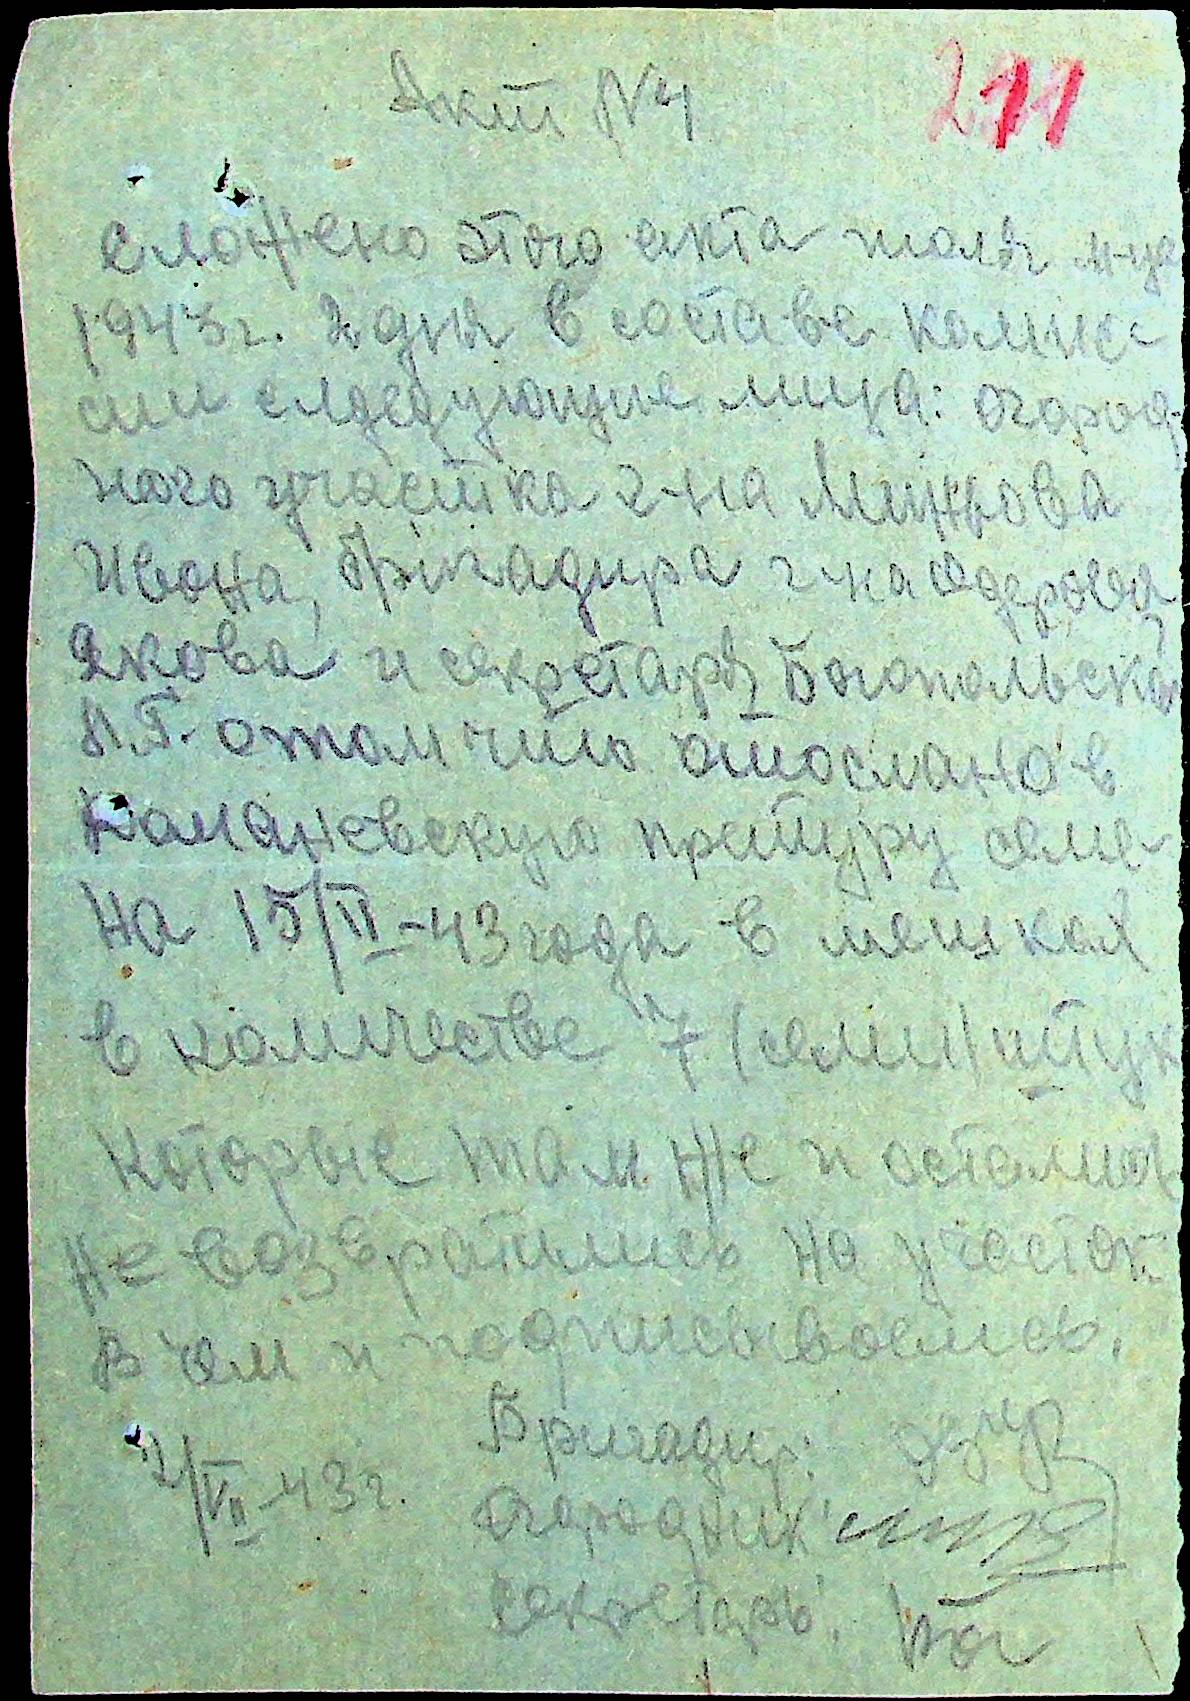 Акт №4
211
сложено этого акта июля м-ца
1943г. 2 дня в составе комис-
сии следедующие лица: огород-
ного участка г-на Миннова
Ивана, бригадира г-на
Якова и секретаря Богопольской
о том что отослано в
Команевскую претуру семе-
на 15/II-43 года в мешках
в количестве 7 (семи) штук
которые там же и остались
не возвратились на участок
в чем и подписываемсь.
Бригадир:
2/VII-43г.
Огородник:
Секретарь: Бог